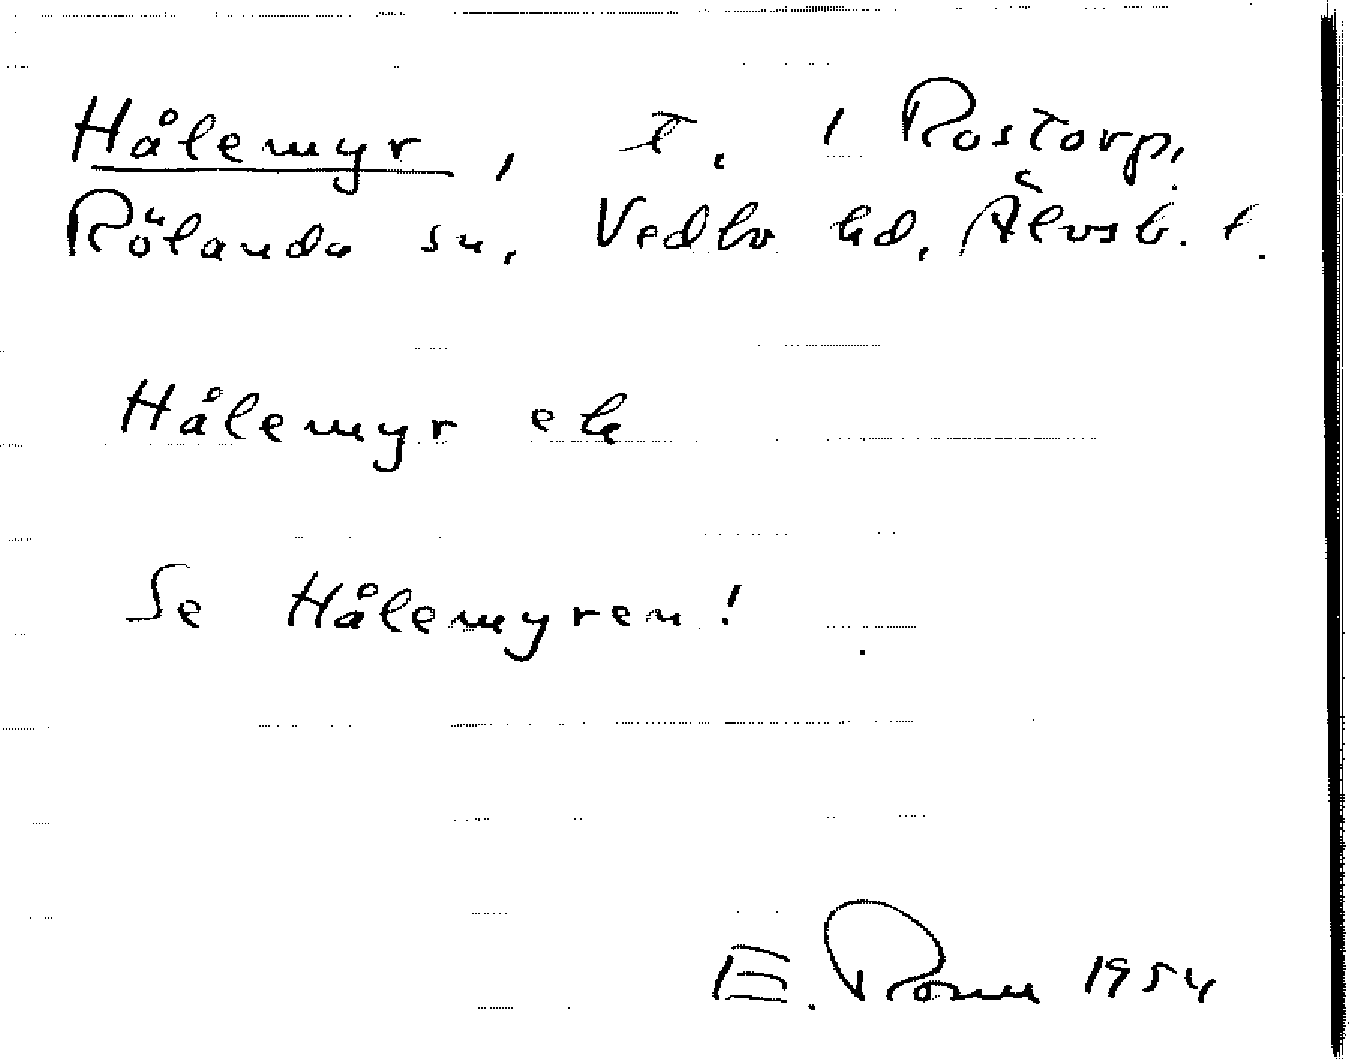 Hålemyr, t. 1 Rostorp,
Rölanda sn, Vedbo hd, Älvsb. l.
Hålemyr ek
Se Hålemyren!
E. Rosell 1954